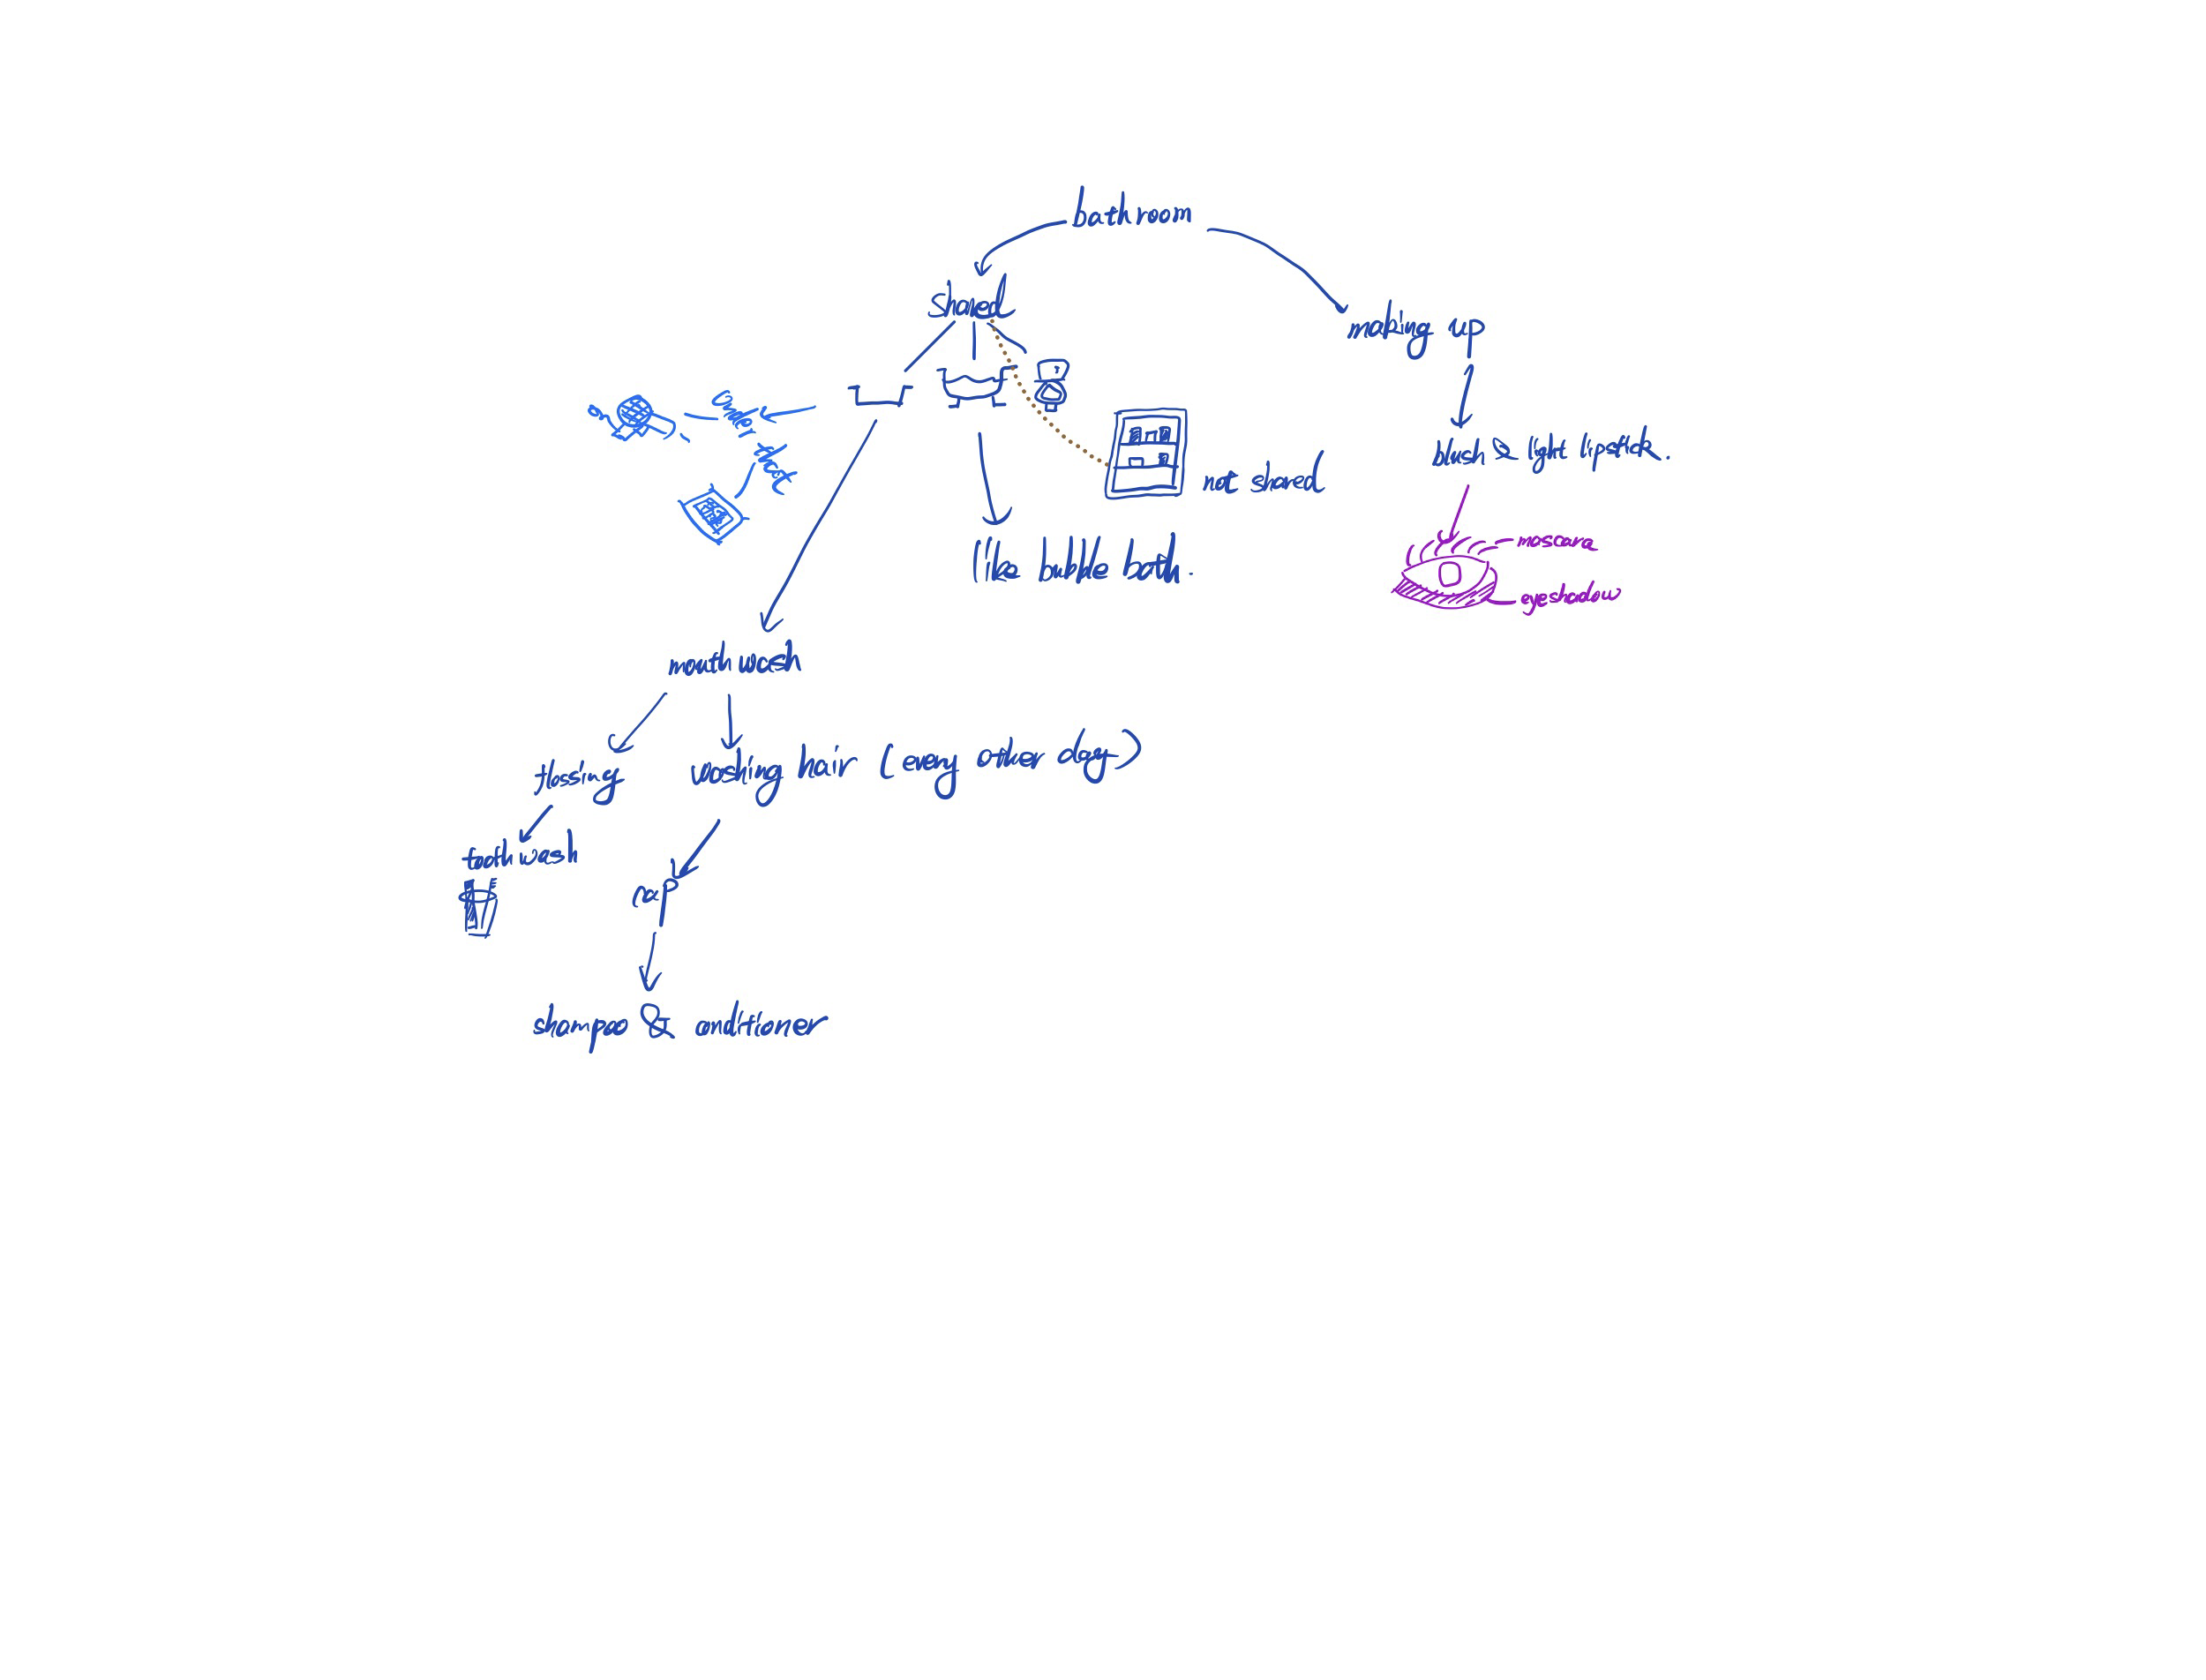 bathroom
shared
making up
blush & light lipstick.
not shared
mascara
eyeshadow
like bubble bath.
mouth wash
flossing
washing hair (every other day)
tooth wash
cap
shampoo & conditioner